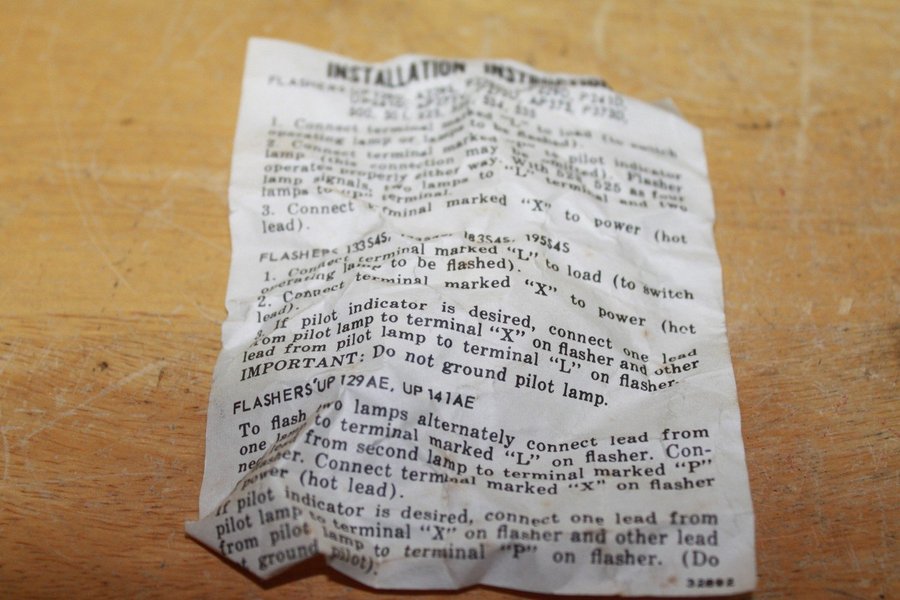 INSTALLATION INSTRUCTION
FLASHERS
1. Connect terminal marked "L" to load (to switch
operating lamp or lamps to be flashed).
2. Connect terminal marked "P" to pilot indicator
lamp (this connection may be omitted). Flasher
operates properly either way. With 525 as four
lamp signals, two lamps to "L" terminal and two
lamps to "P" terminal.
3. Connect terminal marked "X" to power (hot
lead).
FLASHERS 133S45, 183S45, 195S45
1. Connect terminal marked "L" to load (to switch
operating lamp to be flashed).
2. Connect terminal marked "X" to power (hot
lead).
3. If pilot indicator is desired, connect one lead
from pilot lamp to terminal "X" on flasher and other
lead from pilot lamp to terminal "L" on flasher.
IMPORTANT: Do not ground pilot lamp.
FLASHERS UP 129AE, UP 141AE
To flash two lamps alternately connect lead from
one lamp to terminal marked "L" on flasher. Con-
lead from second lamp to terminal marked "P"
Connect terminal marked "X" on flasher
power (hot lead).
If pilot indicator is desired, connect one lead from
pilot lamp to terminal "X" on flasher and other lead
from pilot lamp to terminal "P" on flasher. (Do
ground pilot).